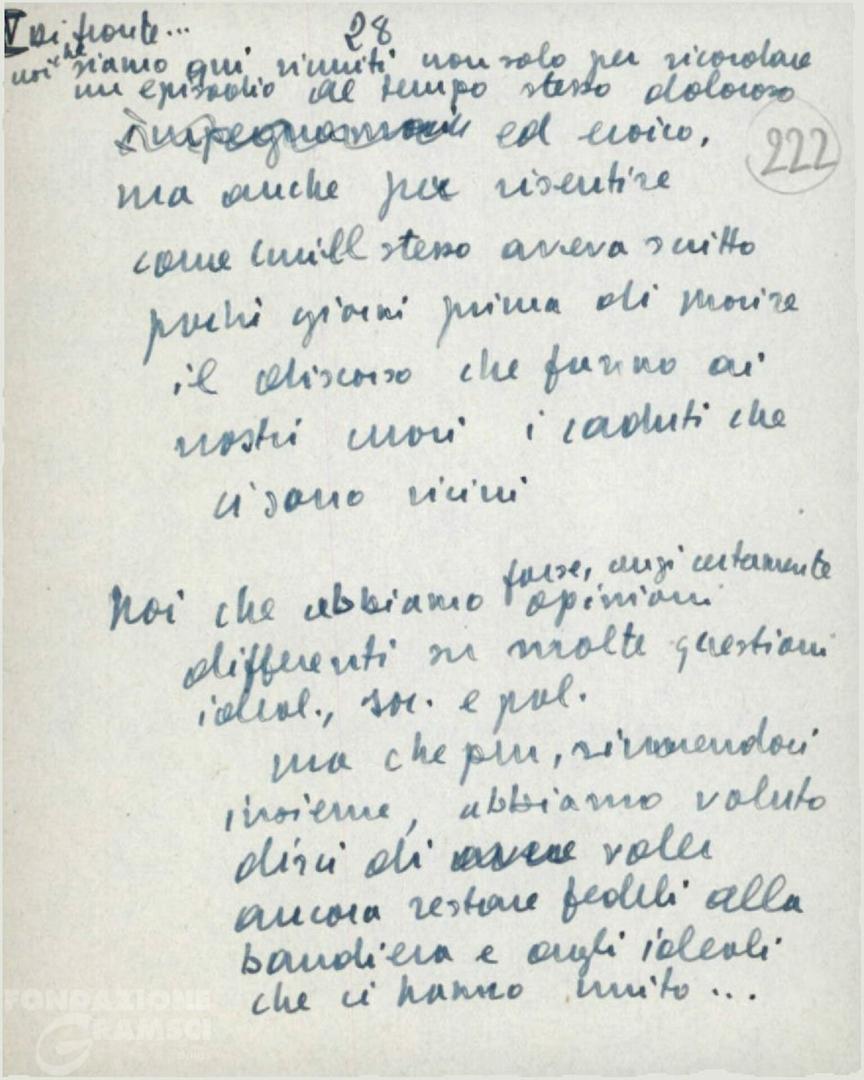 V Di fronte...
28
noi che siamo qui riuniti non solo per ricordare
un episodio al tempo stesso doloroso
ed eroico,
222
ma anche per risentire
come stesso aveva scritto
pochi giorni prima di morire
il discorso che fanno ai
nostri cuori i caduti che
ci sono vicini
Noi che abbiamo forse, anzi certamente
opinioni
differenti su molte questioni
ideol., soc. e pol.
ma che pur, riunendoci
insieme, abbiamo voluto
dirci di voler
ancora restare fedeli alla
bandiera e agli ideali
che ci hanno unito...
FONDAZIONE
GRAMSCI